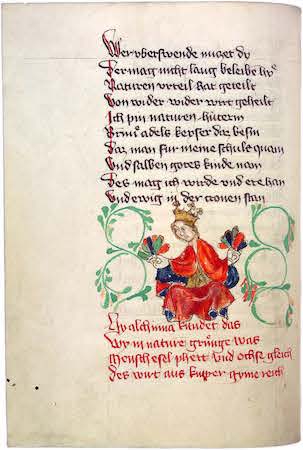 Wer vberswende nüczet dy
Der mag nicht lang beleibe hye
Naturen vrteil hat geteilt
Von wider wider wirt geheilt
Ich pin naturen hüterin
adels keyser daz besin
Daz man für meine schule quam
Vnd salben gotes kinde nam
Des mag ich wirde vnd ere han
Vnd ewig in der cronen stan
Alchimia kündet das
Wy in nature grünge was
Mensch esel pfert vnd ochs gleich
Des wirt aus kupper gyme reich